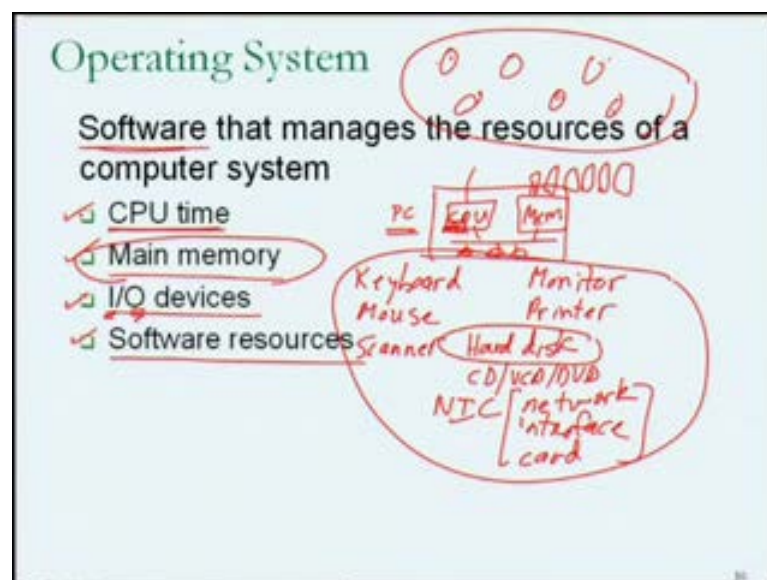 Operating System
Software that manages the resources of a
computer system
CPU time
Main memory
I/O devices
Software resources
PC CPU Mem
Keyboard Monitor
Mouse Printer
Scanner Hard disk
CD/VCD/DVD
NIC [network
interface
card]